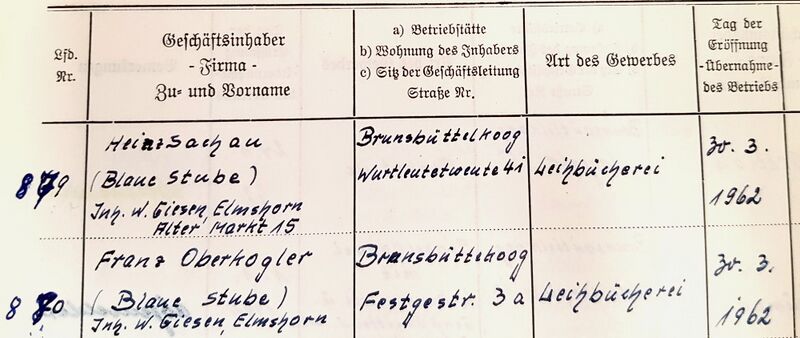 Lfd.
Nr.
Geschäftsinhaber
- Firma -
Zu= und Vorname
a) Betriebstätte
b) Wohnung des Inhabers
c) Sitz der Geschäftsleitung
Straße Nr.
Art des Gewerbes
Tag der
Eröffnung
-Übernahme-
des Betriebs
879
Heinz Sachau
(Blaue Stube)
Inh. W. Giesen, Elmshorn
Alter Markt 15
Brunsbüttelkoog
Wurtleutetweute 41
Leihbücherei
30. 3.
1962
870
Franz Oberkogler
(Blaue Stube)
Inh. W. Giesen, Elmshorn
Brunsbüttelkoog
Festgestr. 3a
Leihbücherei
30. 3.
1962